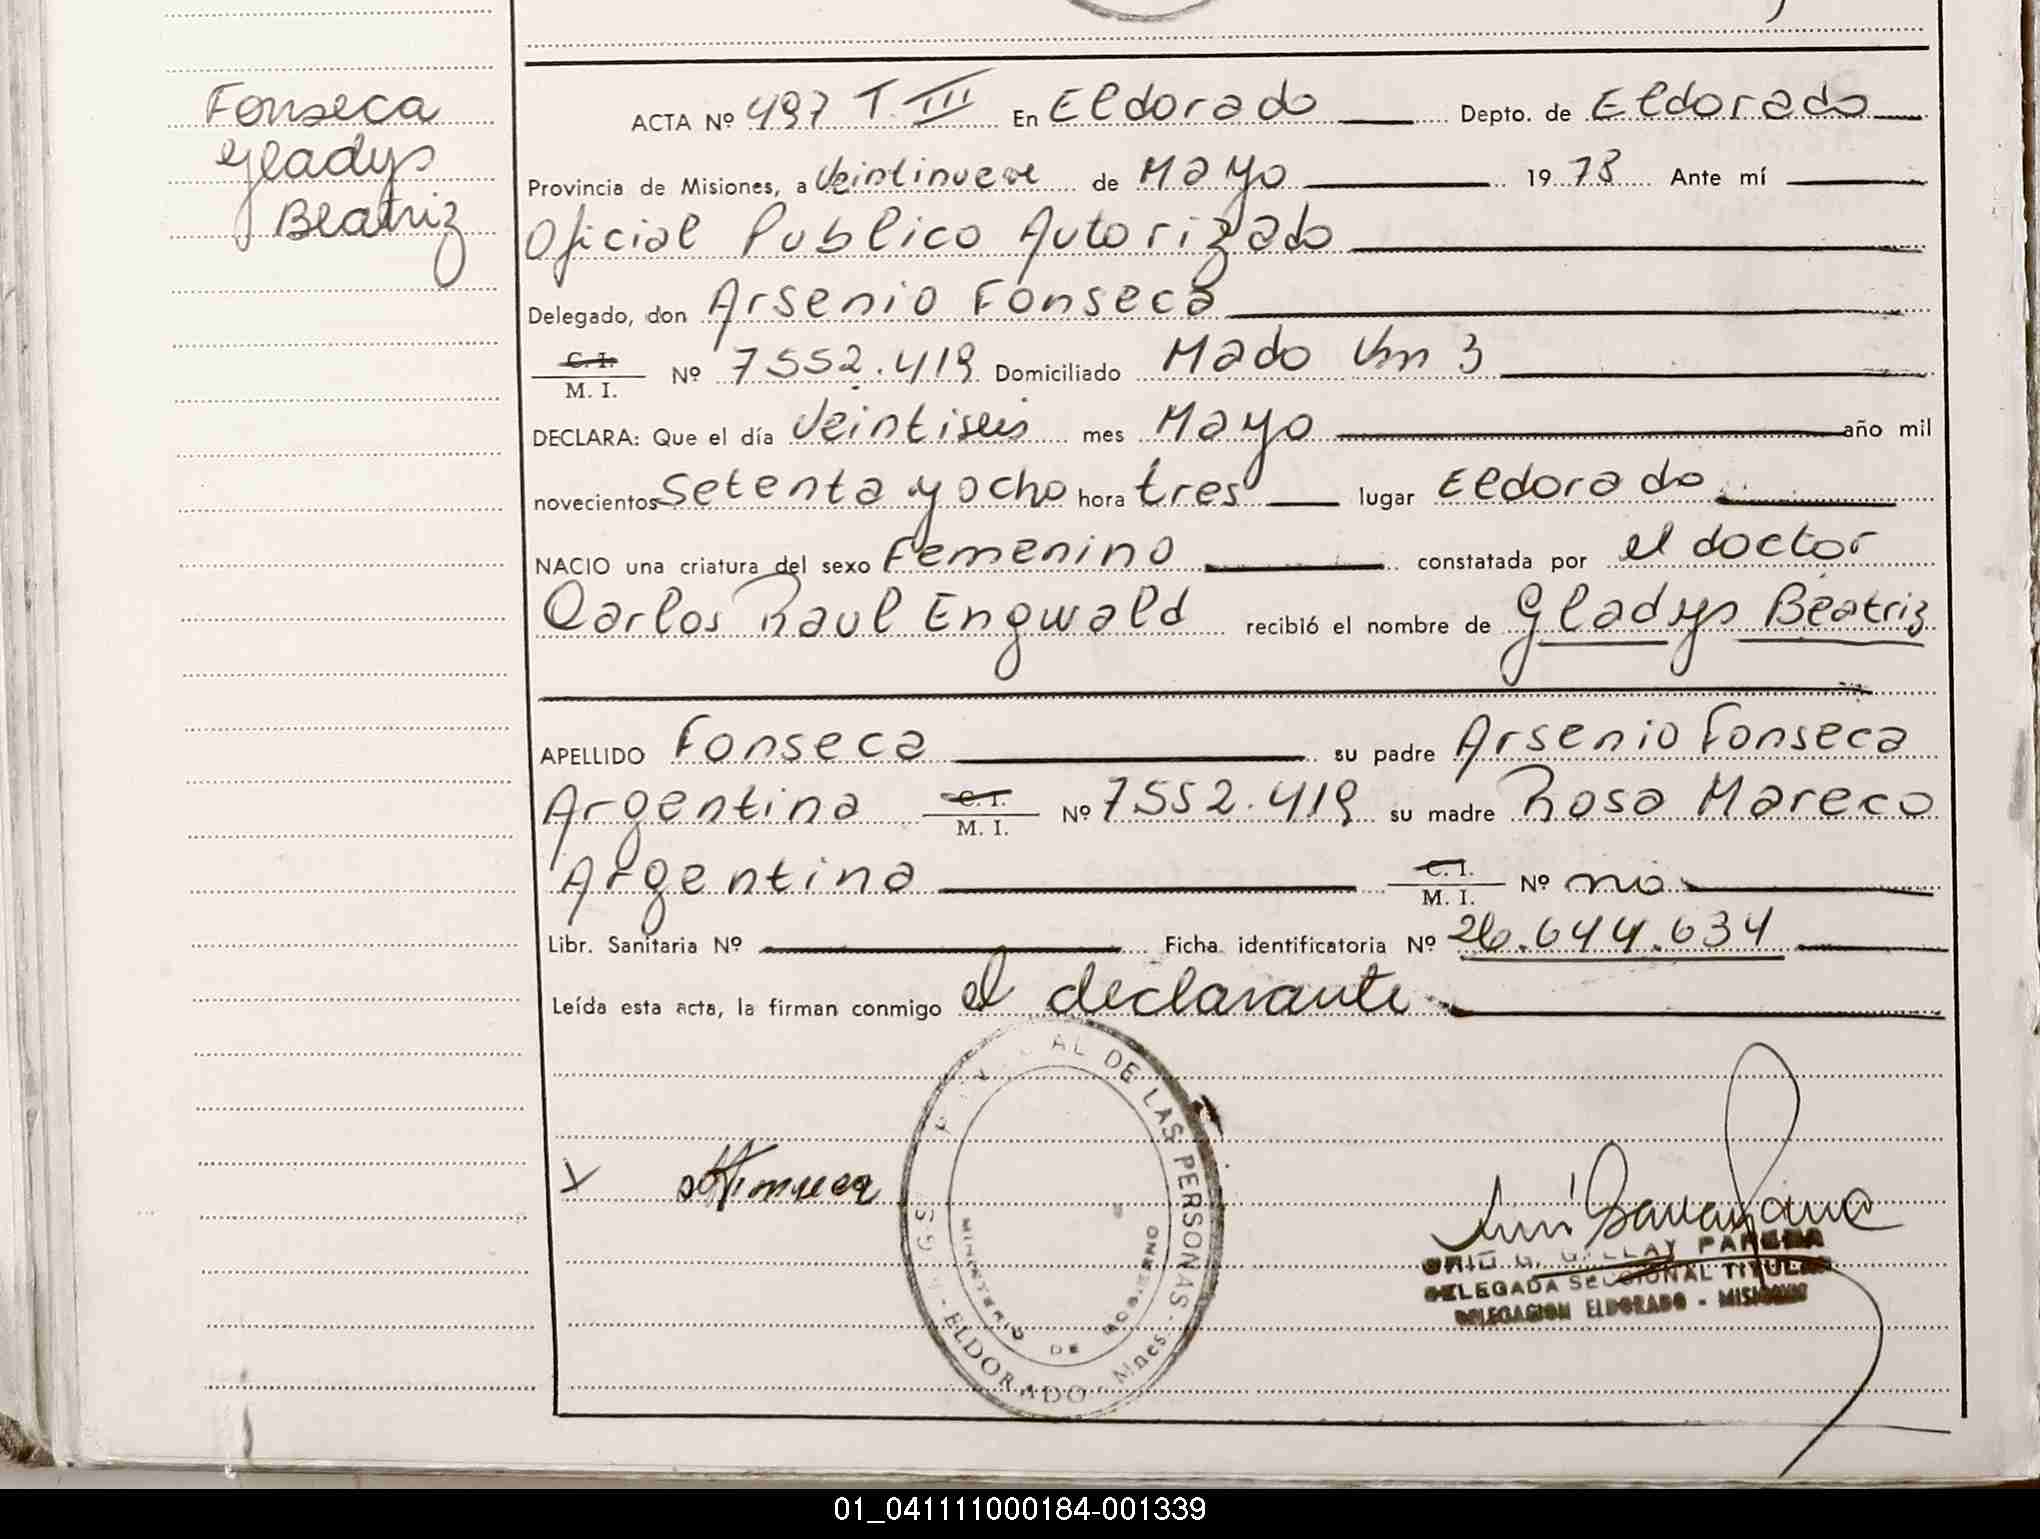 Fonseca
Gladys
Beatriz
ACTA Nº 497 T. III En Eldorado Depto. de Eldorado
Provincia de Misiones, a Veintinueve de Mayo 19 78 Ante mí
Oficial Publico Autorizado
Delegado, don Arsenio Fonseca
C. I.
M. I. Nº 7552.419 Domiciliado Mado Km 3
DECLARA: Que el día Veintiseis mes Mayo año mil
novecientos Setenta y ocho hora tres lugar Eldorado
NACIO una criatura del sexo Femenino constatada por el doctor
Carlos Raul Engwald recibió el nombre de Gladys Beatriz
APELLIDO Fonseca su padre Arsenio Fonseca
Argentina C. I.
M. I. Nº 7552.419 su madre Rosa Mareco
Argentina C. I.
M. I. Nº no
Libr. Sanitaria Nº Ficha identificatoria Nº 26.644.634
Leída esta acta, la firman conmigo el declarante
AL DE LAS PERSONAS - ELDORADO - Mnes.
MINISTERIO DE GOBIERNO
PARERA
DELEGADA SECCIONAL TITULAR
DELEGACION ELDORADO - MISIONES
01_041111000184-001339